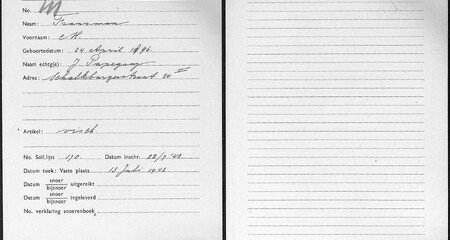 No. M
Naam: Fransman
Voornaam: M.
Geboortedatum: 24 April 1896
Naam echtg(e): J. Papegaay
Adres: Schalkburgerstraat 30 II
Artikel: visch
No. Soll.lijst 170 Datum inschr. 22/7 '42
Datum toek: Vaste plaats 13 Juli 1942
Datum snoer uitgereikt
bijsnoer
Datum snoer ingeleverd
bijsnoer
No. verklaring snoerenboek